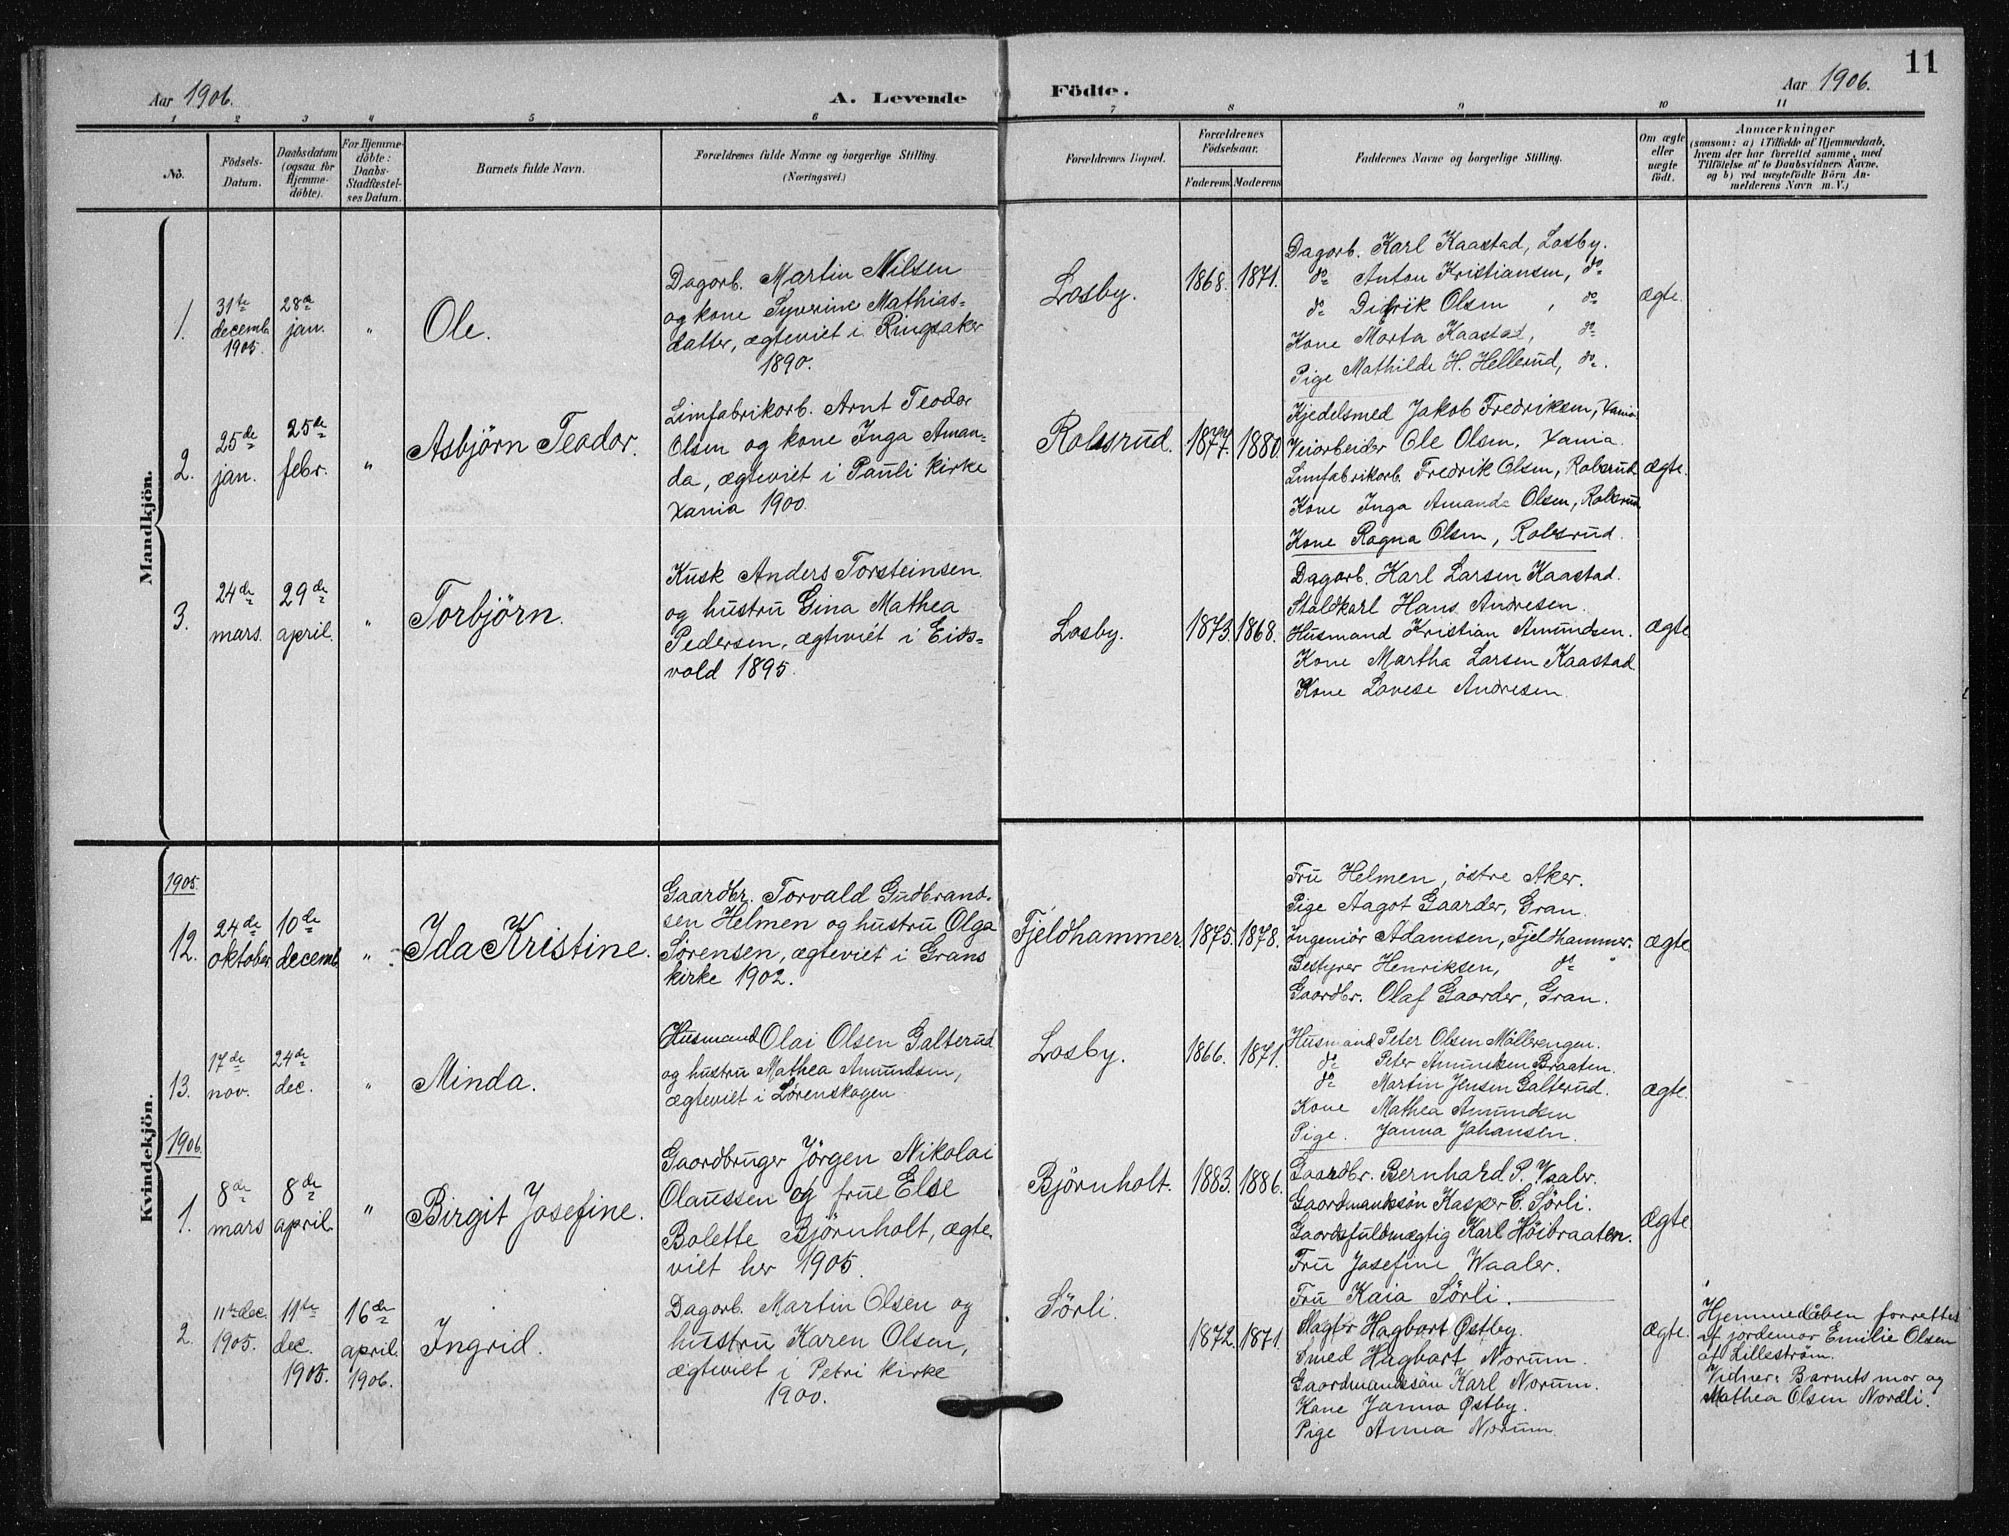 11
Aar 1906.
A. Levende
Födte.
Aar 1906.
1 2 3 4 5 6 7 8 9 10 11
No.
Födsels-
Datum.
Daabsdatum
(ogsaa for
Hjemme-
döbte).
For Hjemme-
döbte:
Daabs-
Stadfæstel-
ses Datum.
Barnets fulde Navn.
Forældrenes fulde Navne og borgerlige Stilling.
(Næringsvei.)
Forældrenes Bopæl.
Forældrenes
Födselsaar.
Faderens Moderens
Faddernes Navne og borgerlige Stilling.
Om ægte
eller
uægte
födt.
Anmærkninger
(saasom: a) i Tilfælde af Hjemmedaab,
hvem der har forrettet samme, med
Tilföielse af to Daabsvidners Navne.
og b) ved uægtefödte Börn An-
melderens Navn m. V.)
Mandkjön.
1.
31te
decemb.
1905.
28de
jan.
"
Ole.
Dagorb. Martin Nilsen
og kone Syverine Mathias-
datter, ægteviet i Ringsaker
1890.
Losby.
1868. 1871.
Dagorb. Karl Kaastad, Losby.
do Anton Kristiansen, do
do Didrik Olsen, do
Kone Marta Kaastad, do
Pige Mathilde H. Hellerud, do.
ægte.
2.
25de
jan.
25de
febr.
"
Asbjörn Teodor.
Limfabrikorb. Arnt Teodor
Olsen og kone Inga Aman-
da, ægteviet i Pauli kirke
Xania 1900.
Robsrud.
1877. 1880.
Kjedelsmed Jakob Fredriksen, Xania
Veiarbeider Ole Olsen, Xania.
Limfabrikorb. Fredrik Olsen, Robsrud.
Kone Inga Amanda Olsen, Robsrud
Kone Ragna Olsen, Robsrud.
ægte.
3.
24de
mars.
29de
april.
"
Torbjörn.
Kusk Anders Torsteinsen
og hustru Gina Mathea
Pedersen, ægteviet i Eids-
vold 1895.
Losby.
1873. 1868.
Dagorb. Karl Larsen Kaastad.
Staldkarl Hans Andresen.
Husmand Kristian Amundsen.
Kone Martha Larsen Kaastad
Kone Lovese Andresen.
ægte
Kvindekjön.
1905.
12.
24de
oktober
10de
decemb.
"
Ida Kristine.
Gaardbr. Torvald Gudbrand-
sen Helmen og hustru Olga
Sørensen, ægteviet i Grans
kirke 1902.
Fjeldhammer.
1875. 1878.
Fru Helmen, østre Aker.
Pige Aagot Gaarder, Gran.
Ingeniør Adamsen, Fjeldhammer.
Bestyrer Henriksen, do
Gaardbr. Olaf Gaarder, Gran.
ægte
13.
17de
nov.
24de
dec.
"
Minda.
Husmand Olai Olsen Galterud
og hustru Mathea Amundsen,
ægteviet i Lørenskogen.
Losby.
1866. 1871.
Husmand Peter Olsen Møllerengen.
do Peter Amundsen Braaten.
do Martin Jensen Galterud.
Kone Mathea Amundsen
Pige. Janna Johansen.
ægte.
1906.
1.
8de
mars
8de
april.
"
Birgit Josefine.
Gaardbruger Jörgen Nikolai
Olaussen og frue Else
Bolette Bjørnholt, ægte-
viet her 1905.
Bjørnholt.
1883. 1886.
Gaardbr. Bernhard P. Vaaler.
Gaardmandssön Kasper C. Sörli.
Gaardsfuldmægtig Karl Höibraaten.
Fru Josefine Waaler.
Fru Kaia Sörli.
ægte
2.
11te dec.
1905.
11te
dec.
1905.
16de
april.
1906.
Ingrid.
Dagorb. Martin Olsen og
hustru Karen Olsen,
ægteviet i Petri kirke
1900.
Sörli.
1872. 1871.
Slagter Hagbart Østby.
Smed Hagbart Norum.
Gaardmandssön Karl Norum.
Kone Janna Østby.
Pige Anna Norum.
ægte.
Hjemmedåben forrettes
af jordemor Emilie Olsen
af Lilleström.
Vidner: Barnets mor og
Mathea Olsen Nordli.